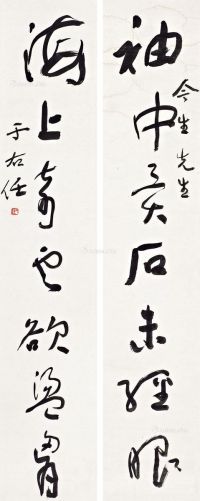 今生先生
袖中異石未經眼
海上奇云欲盪胷
于右任